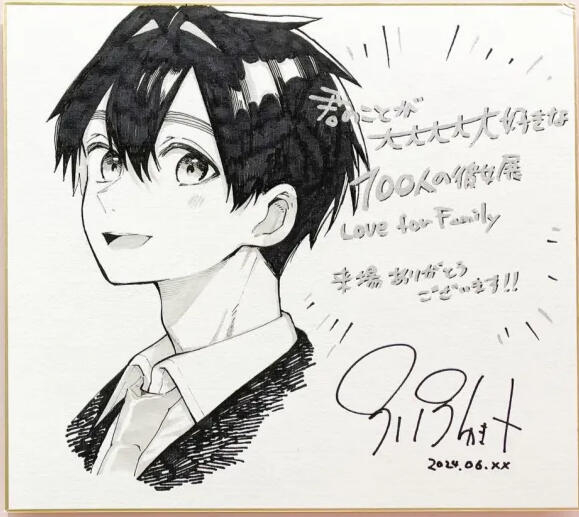 君のことが
大大大大大好きな
100人の彼女展
Love for Family
来場ありがとう
ございます!!
2024.06.xx